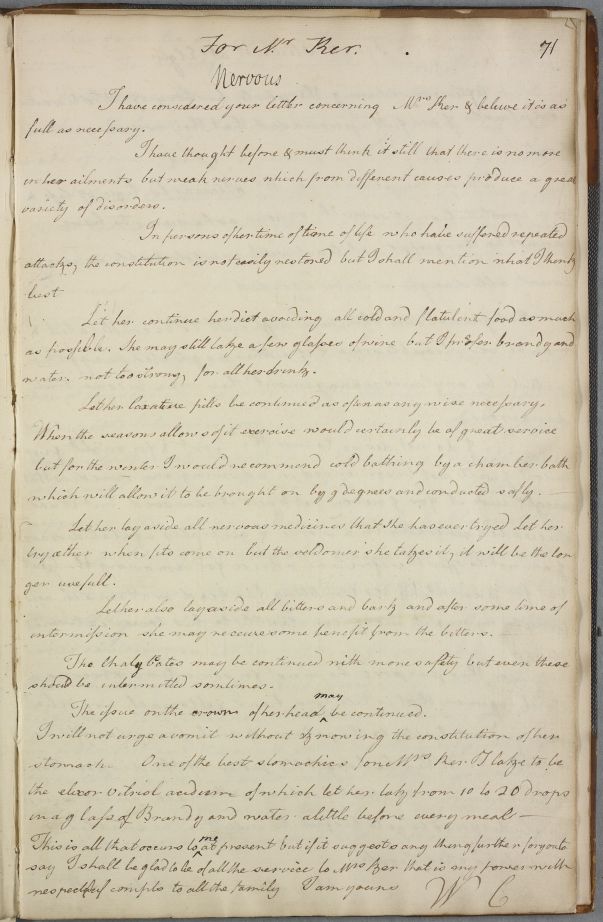 For Mr Ker. 71
Nervous
I have considered your letter concerning Mrs Ker & believe it is as
full as necessary.
I have thought before & must think it still that there is no more
in her ailments but weak nerves which from different causes produce a great
variety of disorders.
In persons of her time of time of life who have suffered repeated
attacks, the constitution is not easily restored but I shall mention what I think
best
Let her continue her diet avoiding all cold and flatulent food as much
as possible. She may still take a few glasses of wine but I prefer brandy and
water. not too strong, for all her drink.
Let her laxative pills be continued as often as any wise necessary.
When the seasons allows of it exercise would certainly be of great service
but for the winter I would recommend cold bathing by a chamber bath
which will allow it to be brought on by degrees and conducted safly.
Let her lay aside all nervous medicines that she has ever tryed Let her
try æther when fits come on but the seldomer she takes it, it will be the lon
ger usefull.
Let her also lay aside all bitters and bark and after some time of
intermission she may receive some benefit from the bitters.
The Chalybeates may be continued with more safety but even these
should be intermitted somtimes.
The issue on the crown of her head may be continued.
I will not urge a vomit without knowing the constitution of her
stomach. One of the best stomachics for Mrs Ker I take to be
the elixor vitriol acidum of which let her take from 10 to 20 drops
in a glass of Brandy and water a little before every meal —
This is all that occurs to me at present but if it suggests any thing further for you to
say I shall be glad to be of all the service to Mrs Ker that is in my power with
respectful compts to all the family I am yours W C